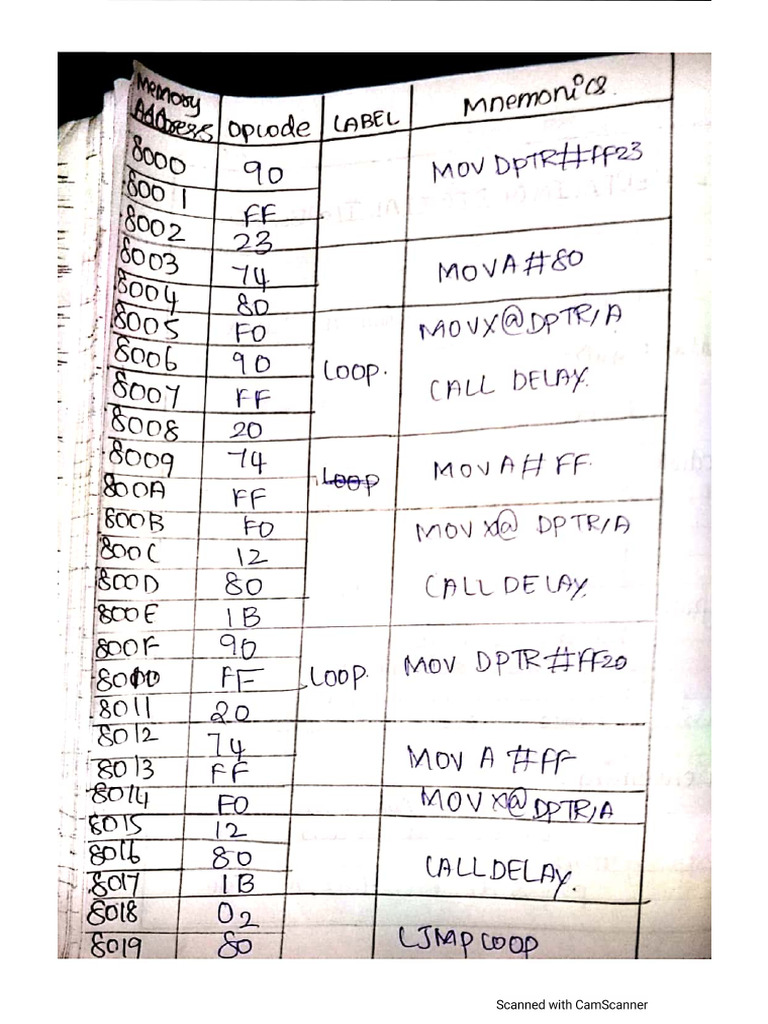 Memory Address Opcode LABEL Mnemonics
8000 90 MOV DPTR#FF23
8001 FF
8002 23
8003 74 MOV A#80
8004 80
8005 F0 MOVX@DPTR,A
8006 90 LOOP. CALL DELAY.
8007 FF
8008 20
8009 74 Loop MOV A# FF.
800A FF
800B F0 MOVX@ DPTR,A
800C 12
800D 80 CALL DELAY.
800E 1B
800F 90 MOV DPTR#FF20
8010 FF LOOP.
8011 20
8012 74 MOV A #FF
8013 FF
8014 F0 MOVX@DPTR,A
8015 12
8016 80 CALL DELAY.
8017 1B
8018 02 LJMP LOOP
8019 80
Scanned with CamScanner